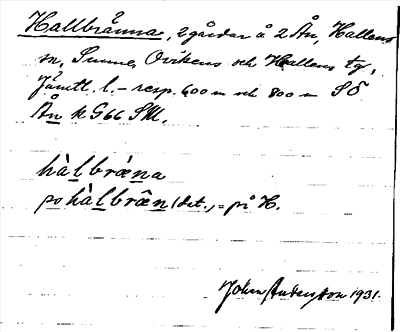 Hallbränna, 2 gårdar å 2 Ån, Hallens
sn, Sunne, Ovikens och Hallens tg,
Jämtl. l. – resp. 600 m och 800 m SÖ
Ån k G66 SM.
hàlbrǽna
po hàlbrǽn (det., = på H.
John Andersson 1931.